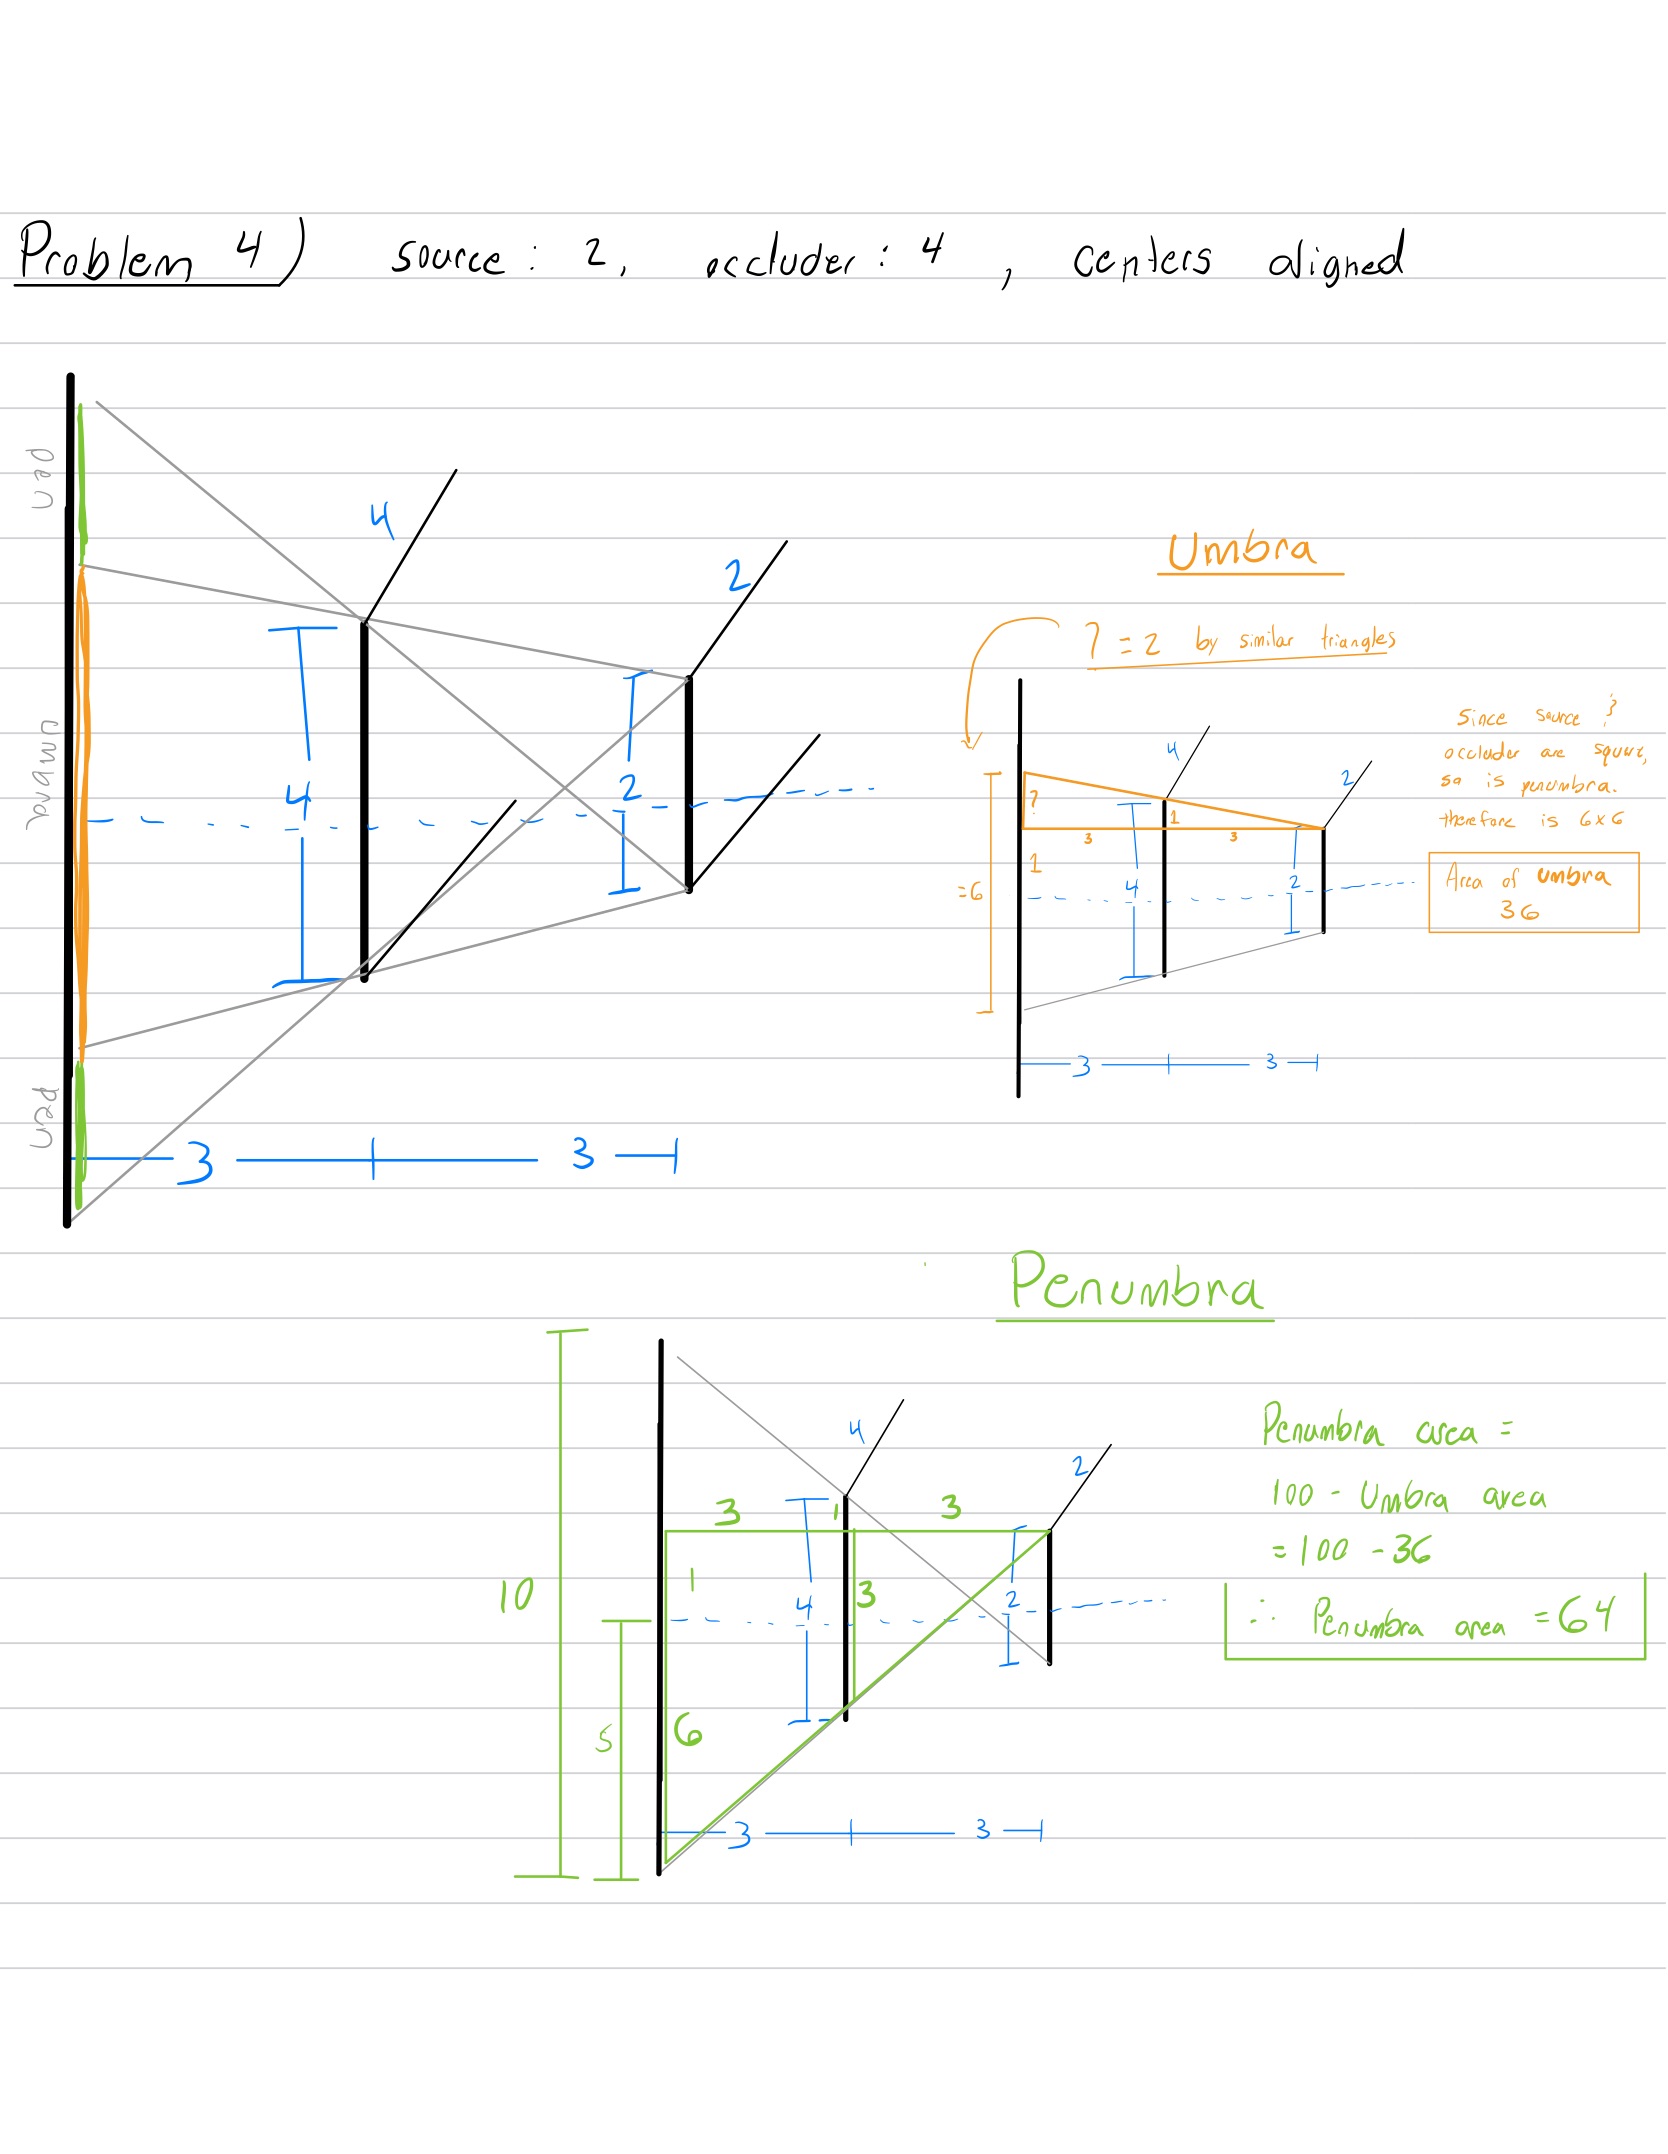 Problem 4) source: 2, occluder: 4, centers aligned
pen
umbra
pen
4
2
4
2
3
3
Umbra
? = 2 by similar triangles
4
2
?
1
3
3
1
=6
4
2
3
3
Since source &
occluder are square,
so is penumbra.
therefore is 6x6
Area of umbra
36
Penumbra
4
2
3
1
3
1
4
3
2
10
5
6
3
3
Penumbra area =
100 - Umbra area
= 100 - 36
∴ Penumbra area = 64